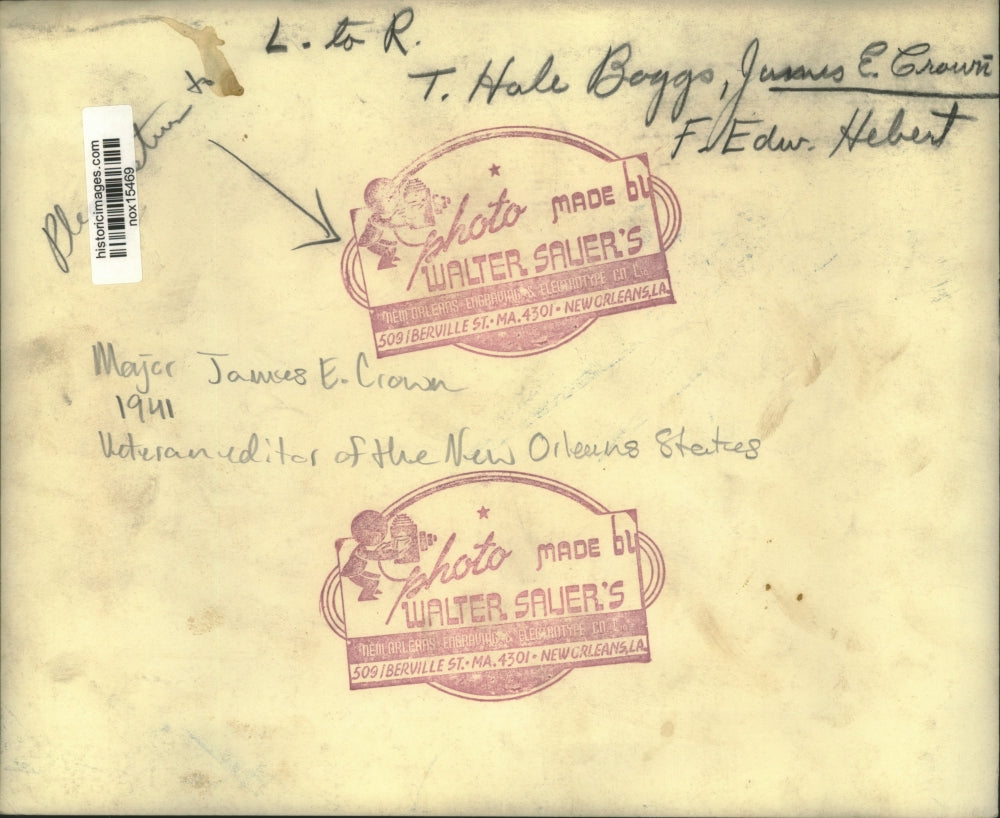 L. to R.
T. Hale Boggs, James E. Crown
F. Edw. Hebert
to
historicimages.com
nox15469
photo MADE by
WALTER SAUER'S
NEW ORLEANS ENGRAVING & ELECTROTYPE CO
509 IBERVILLE ST. • MA. 4301 • NEW ORLEANS, LA.
Major James E. Crown
1941
Veteran editor of the New Orleans States
photo MADE by
WALTER SAUER'S
NEW ORLEANS ENGRAVING & ELECTROTYPE CO
509 IBERVILLE ST. • MA. 4301 • NEW ORLEANS, LA.